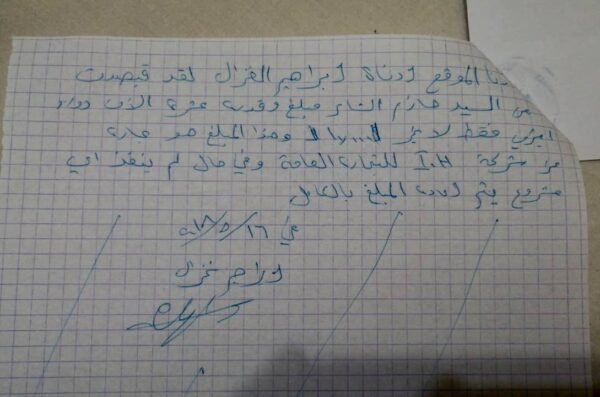 أنا الموقع أدناه ابراهيم الغزال لقد قبضت
من السيد حازم الشاعر مبلغ وقدره عشرة الاف دولار
اميركي فقط لا غير وهذا المبلغ هو
من شركة I.H للتجارة العامة وفي حال لم ينفذ اي
مشروع يتم اعادة المبلغ بالكامل
في ١٦/٥/
ابراهيم غزال